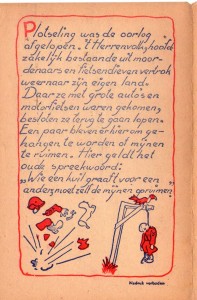 Plotseling was de oorlog
afgelopen. 't Herrenvolk, hoofd-
zakelijk bestaande uit moor-
denaars en fietsendieven vertrok
weer naar zijn eigen land.
Daar ze met grote auto's en
motorfietsen waren gekomen,
besloten ze terug te gaan lopen.
Een paar bleven er hier om ge-
hangen te worden of mijnen
te ruimen. Hier geldt het
oude spreekwoord:
"Wie een kuil graaft voor een
ander, moet zelf de mijnen opruimen."
Nadruk verboden